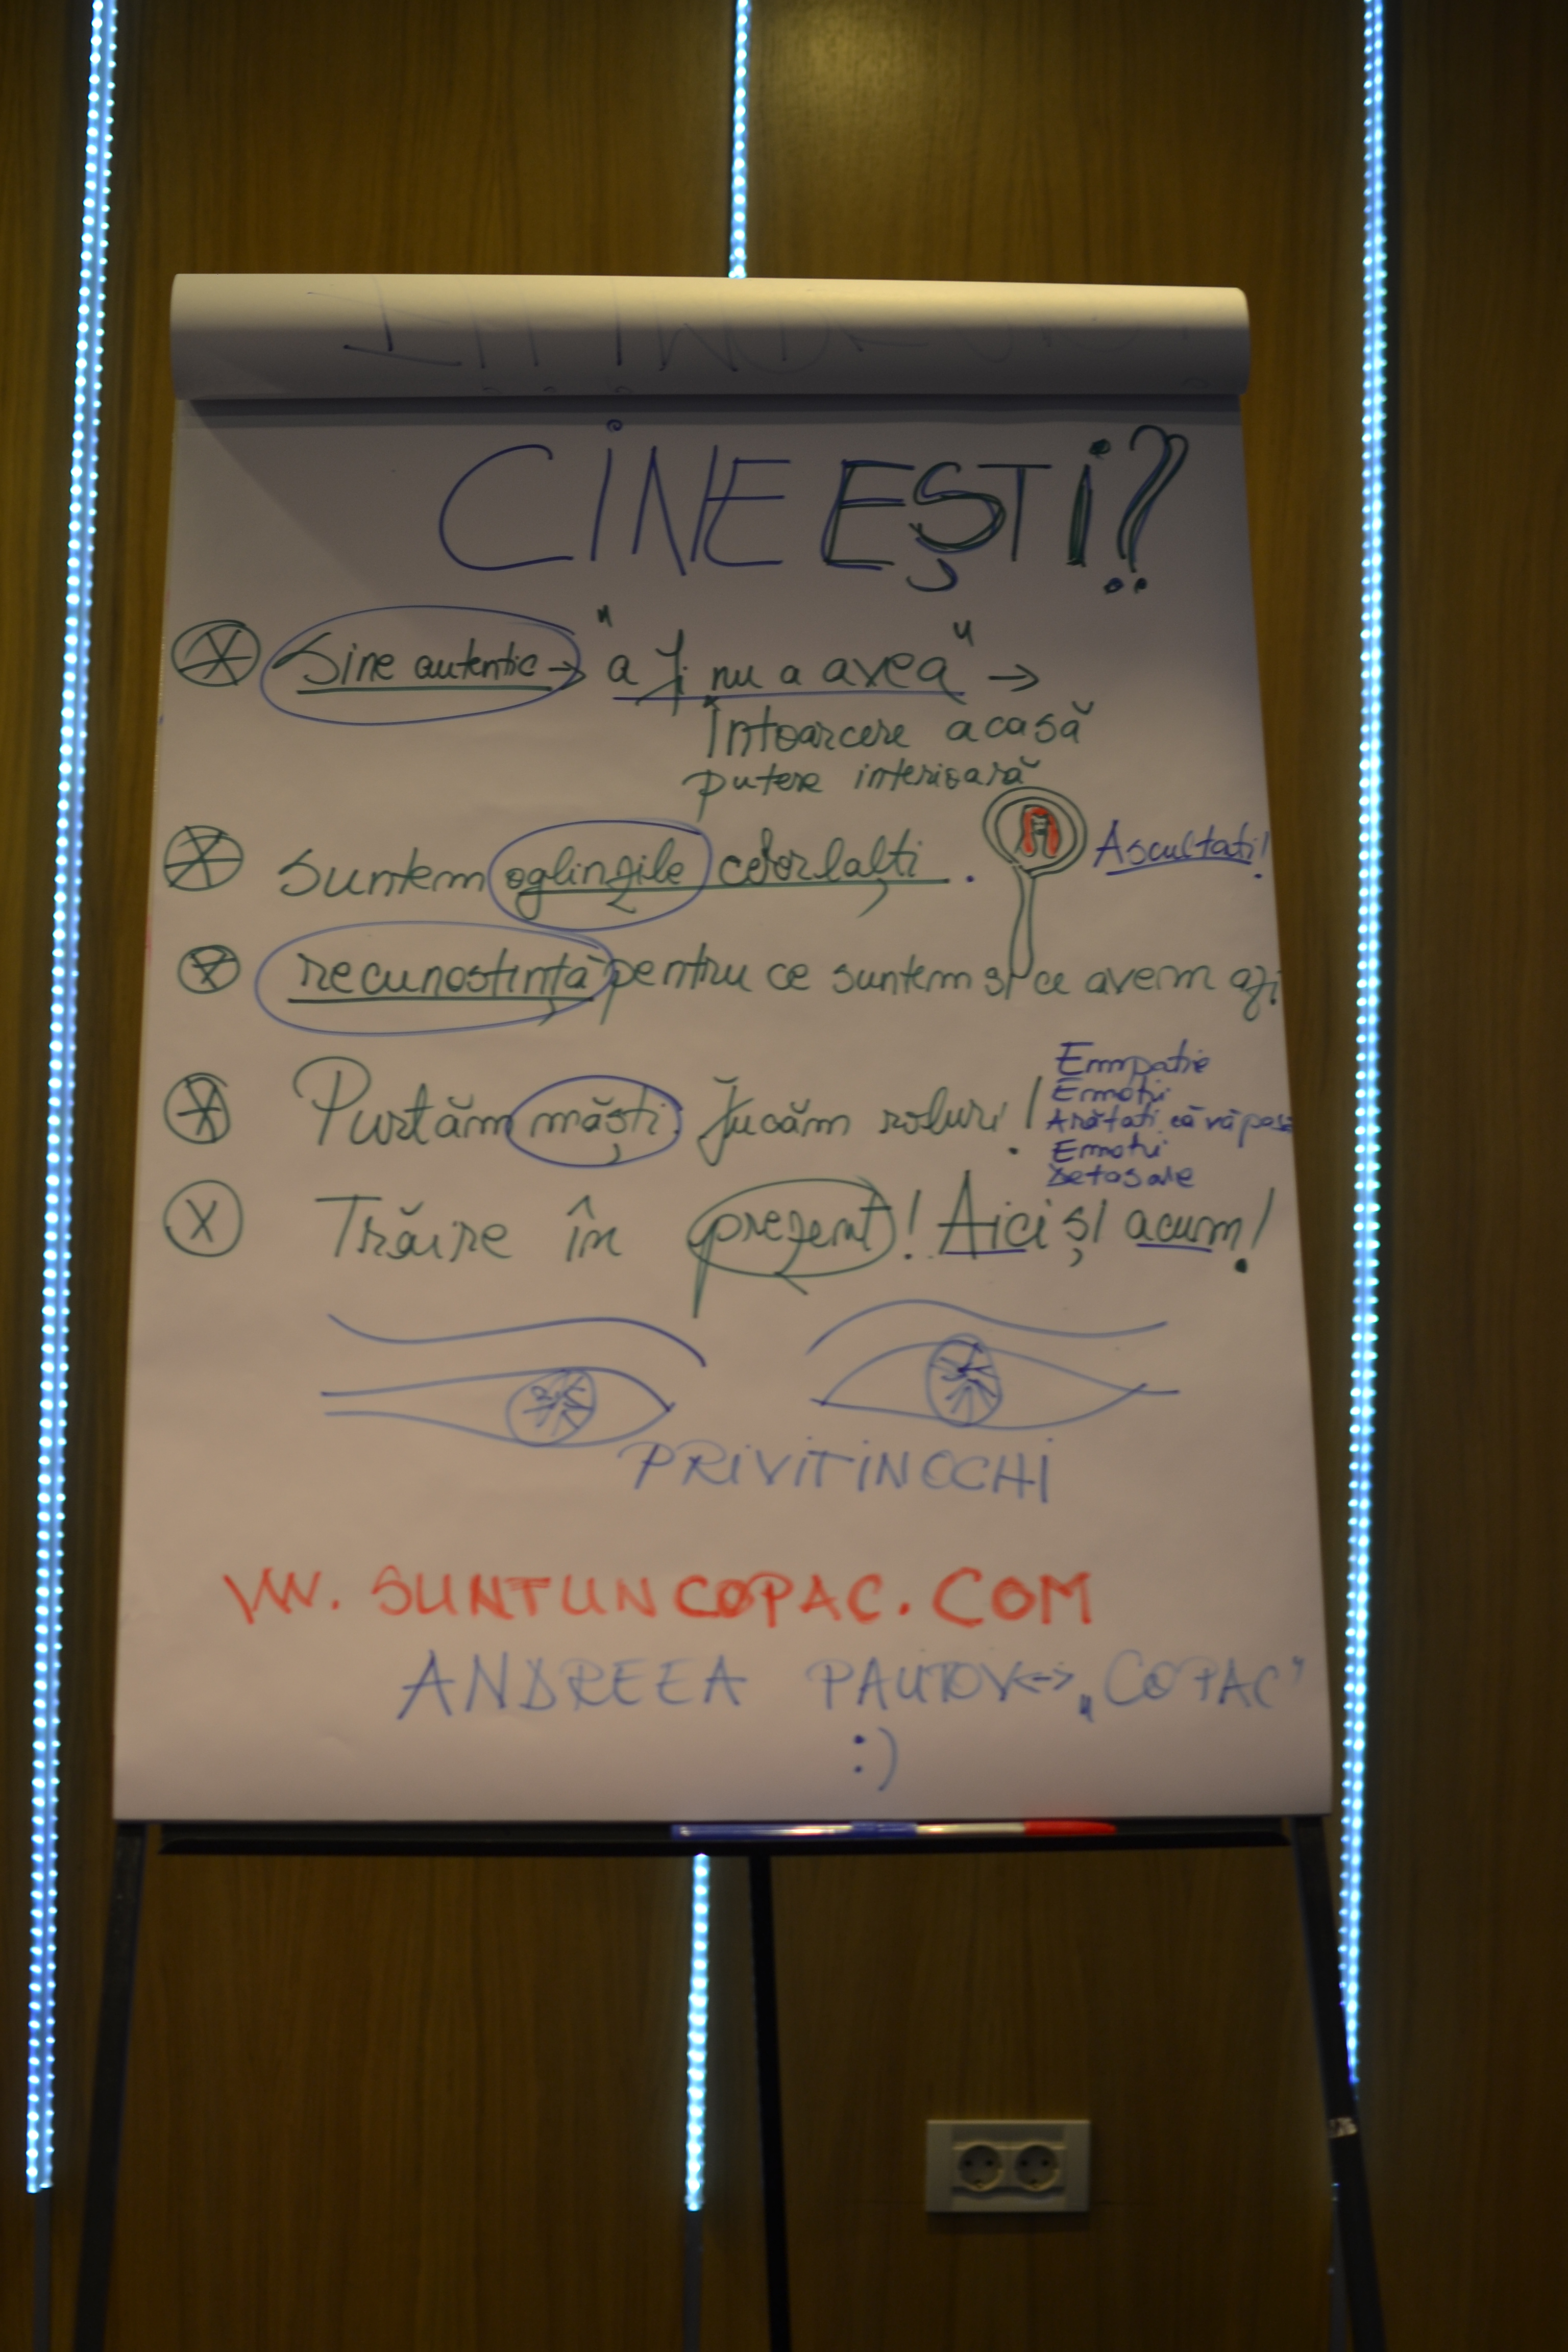 CINE EȘTI?
Sine autentic → "a fi nu a avea" →
Întoarcere acasă
putere interioară
suntem oglinzile celorlalți. Ascultati!
recunostință pentru ce suntem și ce avem azi
Purtăm măști. Jucăm roluri!
Empatie
Emotii
Arătati că vă pasă
Emotii
Detasare
Trăire în prezent! Aici și acum!
PRIVITI IN OCHI
WW. SUNTUNCOPAC.COM
ANDREEA PAUTOV <-> „COPAC"
:)